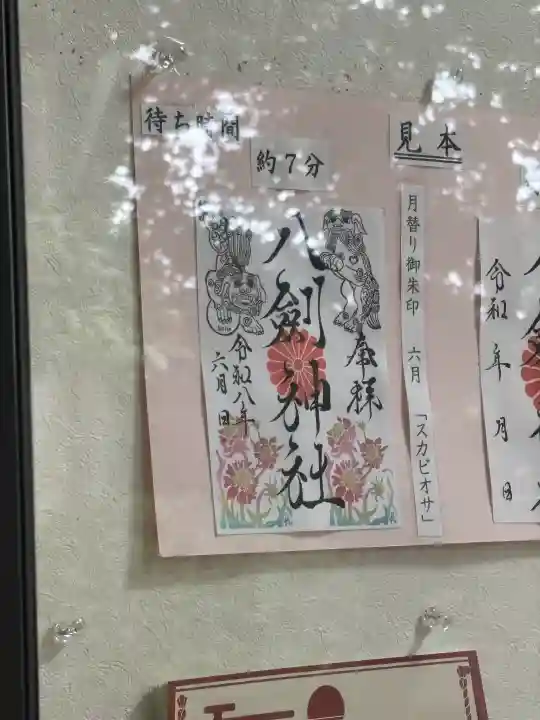 待ち時間
約7分
見本
奉拝
八剣神社
令和八年
六月 日
月替り御朱印 六月 「スカビオサ」
令和 年 月 日